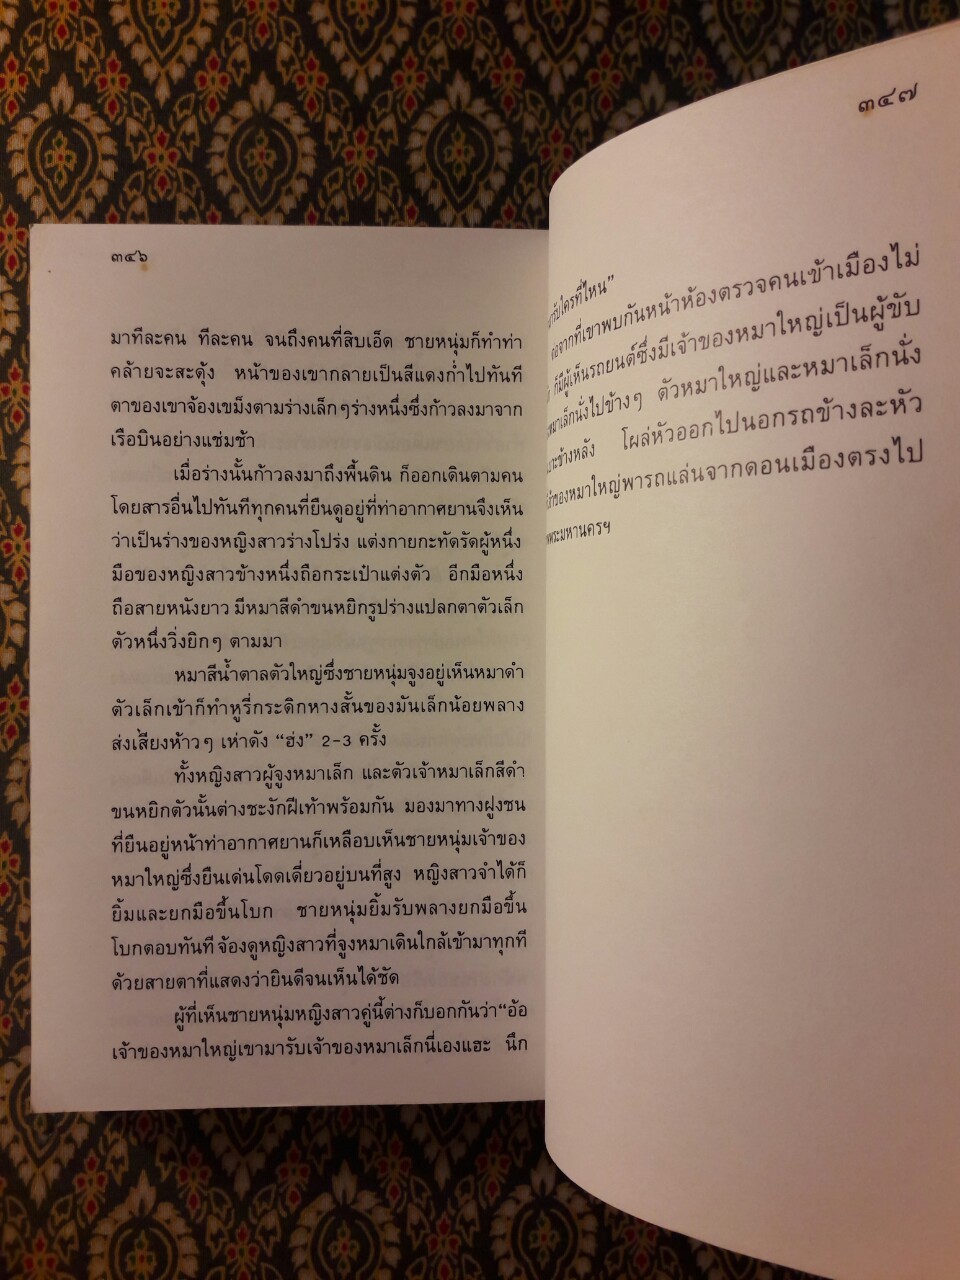 ๓๔๖
มาทีละคน ทีละคน จนถึงคนที่สิบเอ็ด ชายหนุ่มก็ทำท่า
คล้ายจะสะดุ้ง หน้าของเขากลายเป็นสีแดงก่ำไปทันที
ตาของเขาจ้องเขม็งตามร่างเล็กๆร่างหนึ่งซึ่งก้าวลงมาจาก
เรือบินอย่างแช่มช้า
เมื่อร่างนั้นก้าวลงมาถึงพื้นดิน ก็ออกเดินตามคน
โดยสารอื่นไปทันทีทุกคนที่ยืนดูอยู่ที่ท่าอากาศยานจึงเห็น
ว่าเป็นร่างของหญิงสาวร่างโปร่ง แต่งกายกะทัดรัดผู้หนึ่ง
มือของหญิงสาวข้างหนึ่งถือกระเป๋าแต่งตัว อีกมือหนึ่ง
ถือสายหนังยาว มีหมาสีดำขนหยิกรูปร่างแปลกตาตัวเล็ก
ตัวหนึ่งวิ่งยิกๆ ตามมา
หมาสีน้ำตาลตัวใหญ่ซึ่งชายหนุ่มจูงอยู่เห็นหมาดำ
ตัวเล็กเข้าก็ทำหูรี่กระดิกหางสั้นของมันเล็กน้อยพลาง
ส่งเสียงห้าวๆ เห่าดัง “ฮ่ง” 2-3 ครั้ง
ทั้งหญิงสาวผู้จูงหมาเล็ก และตัวเจ้าหมาเล็กสีดำ
ขนหยิกตัวนั้นต่างชะงักฝีเท้าพร้อมกัน มองมาทางฝูงชน
ที่ยืนอยู่หน้าท่าอากาศยานก็เหลือบเห็นชายหนุ่มเจ้าของ
หมาใหญ่ซึ่งยืนเด่นโดดเดี่ยวอยู่บนที่สูง หญิงสาวจำได้ก็
ยิ้มและยกมือขึ้นโบก ชายหนุ่มยิ้มรับพลางยกมือขึ้น
โบกตอบทันที จ้องดูหญิงสาวที่จูงหมาเดินใกล้เข้ามาทุกที
ด้วยสายตาที่แสดงว่ายินดีจนเห็นได้ชัด
ผู้ที่เห็นชายหนุ่มหญิงสาวคู่นี้ต่างก็บอกกันว่า“อ้อ
เจ้าของหมาใหญ่เขามารับเจ้าของหมาเล็กนี่เองแฮะ นึก
๓๔๗
รับใครที่ไหน”
จากที่เขาพบกันหน้าห้องตรวจคนเข้าเมืองไม่
ก็มีผู้เห็นรถยนต์ซึ่งมีเจ้าของหมาใหญ่เป็นผู้ขับ
หมาเล็กนั่งไปข้างๆ ตัวหมาใหญ่และหมาเล็กนั่ง
ข้างหลัง โผล่หัวออกไปนอกรถข้างละหัว
ของหมาใหญ่พารถแล่นจากดอนเมืองตรงไป
พระมหานครฯ